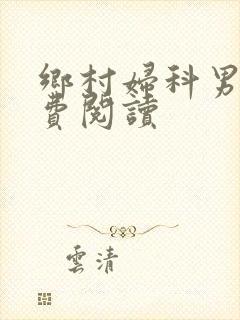 鄉村婦科男
費閱讀
雲清